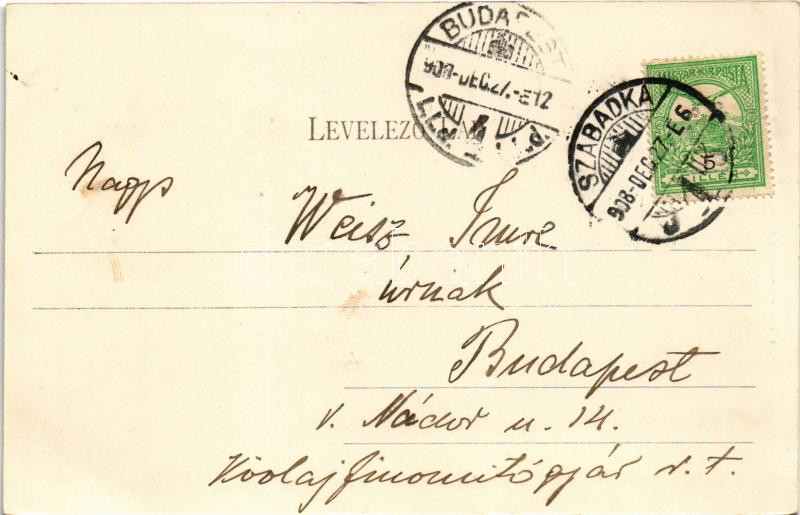 BUDAPEST
908-DEC.27.-E12
MAGYAR KIR. POSTA
5
SZABADKA
908-DEC.27.-E6
LEVELEZŐ-LAP
Nagys
Weisz Imre
úrnak
Budapest
V. Nádor u. 14.
Kőolajfinomitógyár r. t.